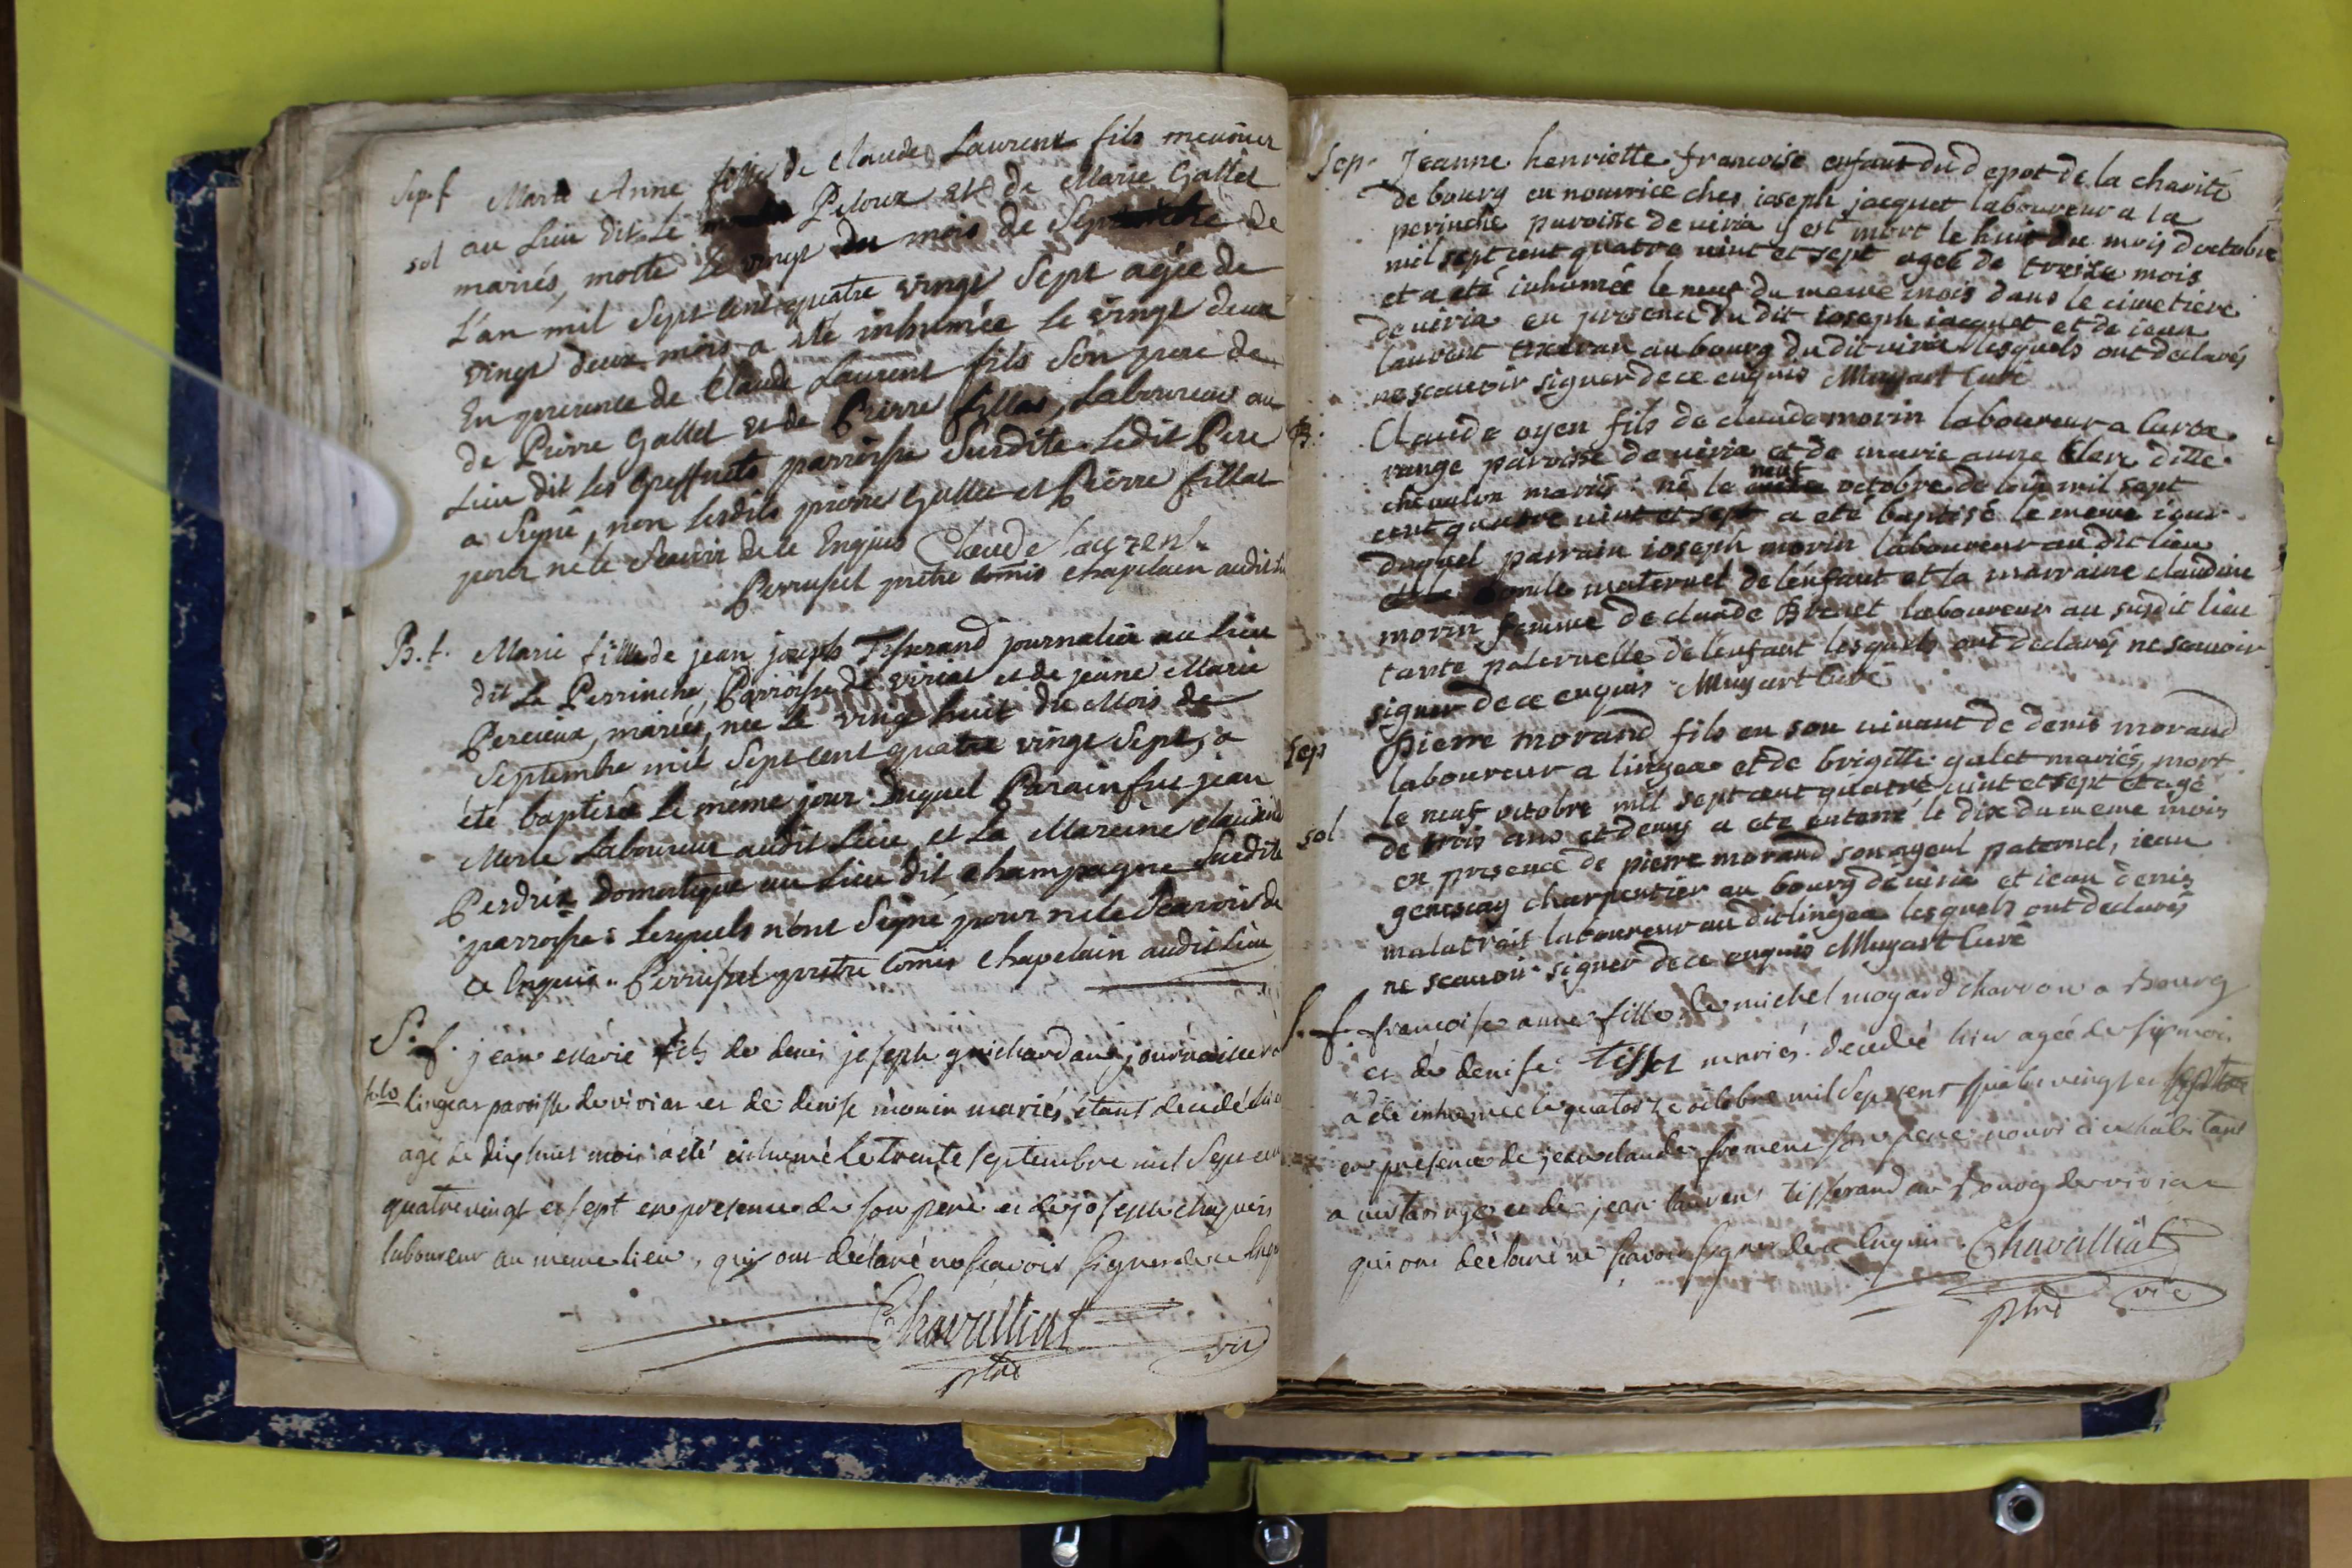 Sep. f. Marie Anne fille de Claude Laurent fils meunier
au Lieu dit Le Peloux et de Marie Gallet
sol
mariés, morte Le vingt du mois de Septembre de
L'an mil Sept cent quatre vingt Sept agée de
vingt deux mois a eté inhumée Le vingt deux
En presence de Claude Laurent fils Son pere de
de Pierre Gallet et de Pierre fillat, Laboureur au
Lieu dit Les Greffets parroisse Susdite. Ledit Pere
a Signé, non lesdits pierre Gallet et Pierre fillat
pour ne le Scavoir de ce Enquis Claude laurent
Perruset prêtre comis chapelain audit lieu
B. f. Marie fille de jean joseph Tisserand journalier au Lieu
dit La Perrinche, Parroisse de viriat et de jeanne Marie
Percieux, mariés, née Le vingt huit du Mois de
Septembre mil Sept cent quatre vingt Sept, a
été baptisée Le même jour. Duquel Parain fut jean
Merle Laboureur audit Lieu et La Mareine claudine
Perdrix Domestique au Lieu dit champagne Susdite
parroisse: Lesquels n'ont Signé pour ne le Scavoir de
ce Enquis .. Perruset prestre Comis chapelain audit Lieu
S. f. jean Marie fils de denis joseph guichard ainé, journailier à
solo lingeas paroisse de viriat et de denise morin mariés étant decedé hier
agé de dix huit mois a été inhumé Le trente septembre mil Sept cent
quatre vingt et sept en presence de son pere et de joseph
laboureur au même lieu, qui ont déclaré ne scavoir signer de ce Enquis
Chavalliat
ptre vic
Sep. jeanne henriette francoise enfant du depot de la charité
de bourg en nourrice ches ioseph jacquet laboureur a la
perinche paroisse de viria y est mort le huit du mois doctobre
mil sept cent quatre vint et sept ageé de treise mois
et a eté inhumeé le neuf du meme mois dans le cimetiere
de viria en presence du dit ioseph iacquet et de iean
laurant tixeran au bourg du dit viria lesquels ont declarés
ne scauoir signer de ce enquis Muyart Curé
B. Claude oyen fils de claude morin laboureur a
range paroisse de viria et de marie anne Clere ditte
chevalon mariés: né le neuf octobre de lan mil sept
cent quatre vint et sept a eté baptisé le meme iour
duquel parrain ioseph morin laboureur au dit lieu
oncle maternel de lenfant et la marraine claudine
morin femme de claude Brevet laboureur au susdit lieu
tante paternelle de lenfant lesquels ont declarés ne scauoir
signer de ce enquis Muyart Curé
Sep pierre morand fils en son vivant de denis morand
laboureur a lingea et de brigitte galet mariés, mort
le neuf octobre mil sept cent quatre vint et sept et agé
sol de trois ans et demy a eté enterré le dix du meme mois
en presence de pierre morand son ayeul paternel, iean
genescay charpentier au bourg de viria et iean denis
malatrait laboureur au dit lingea lesquels ont declarés
ne scauoir signer de ce enquis Muyart Curé
S. f. francoise anne fille de michel moyard charron a Bourg
et de denise Tissot mariés. decedée hier agée de six mois
a été inhumée le quatorze octobre mil sept cent quatre vingt et sept
en presence de jean claude froment son pere nourricier habitant
a et de jean laurent tisserand au Bourg de viriat
qui ont déclaré ne scavoir signer de ce Enquis. Chavalliat
ptre vic